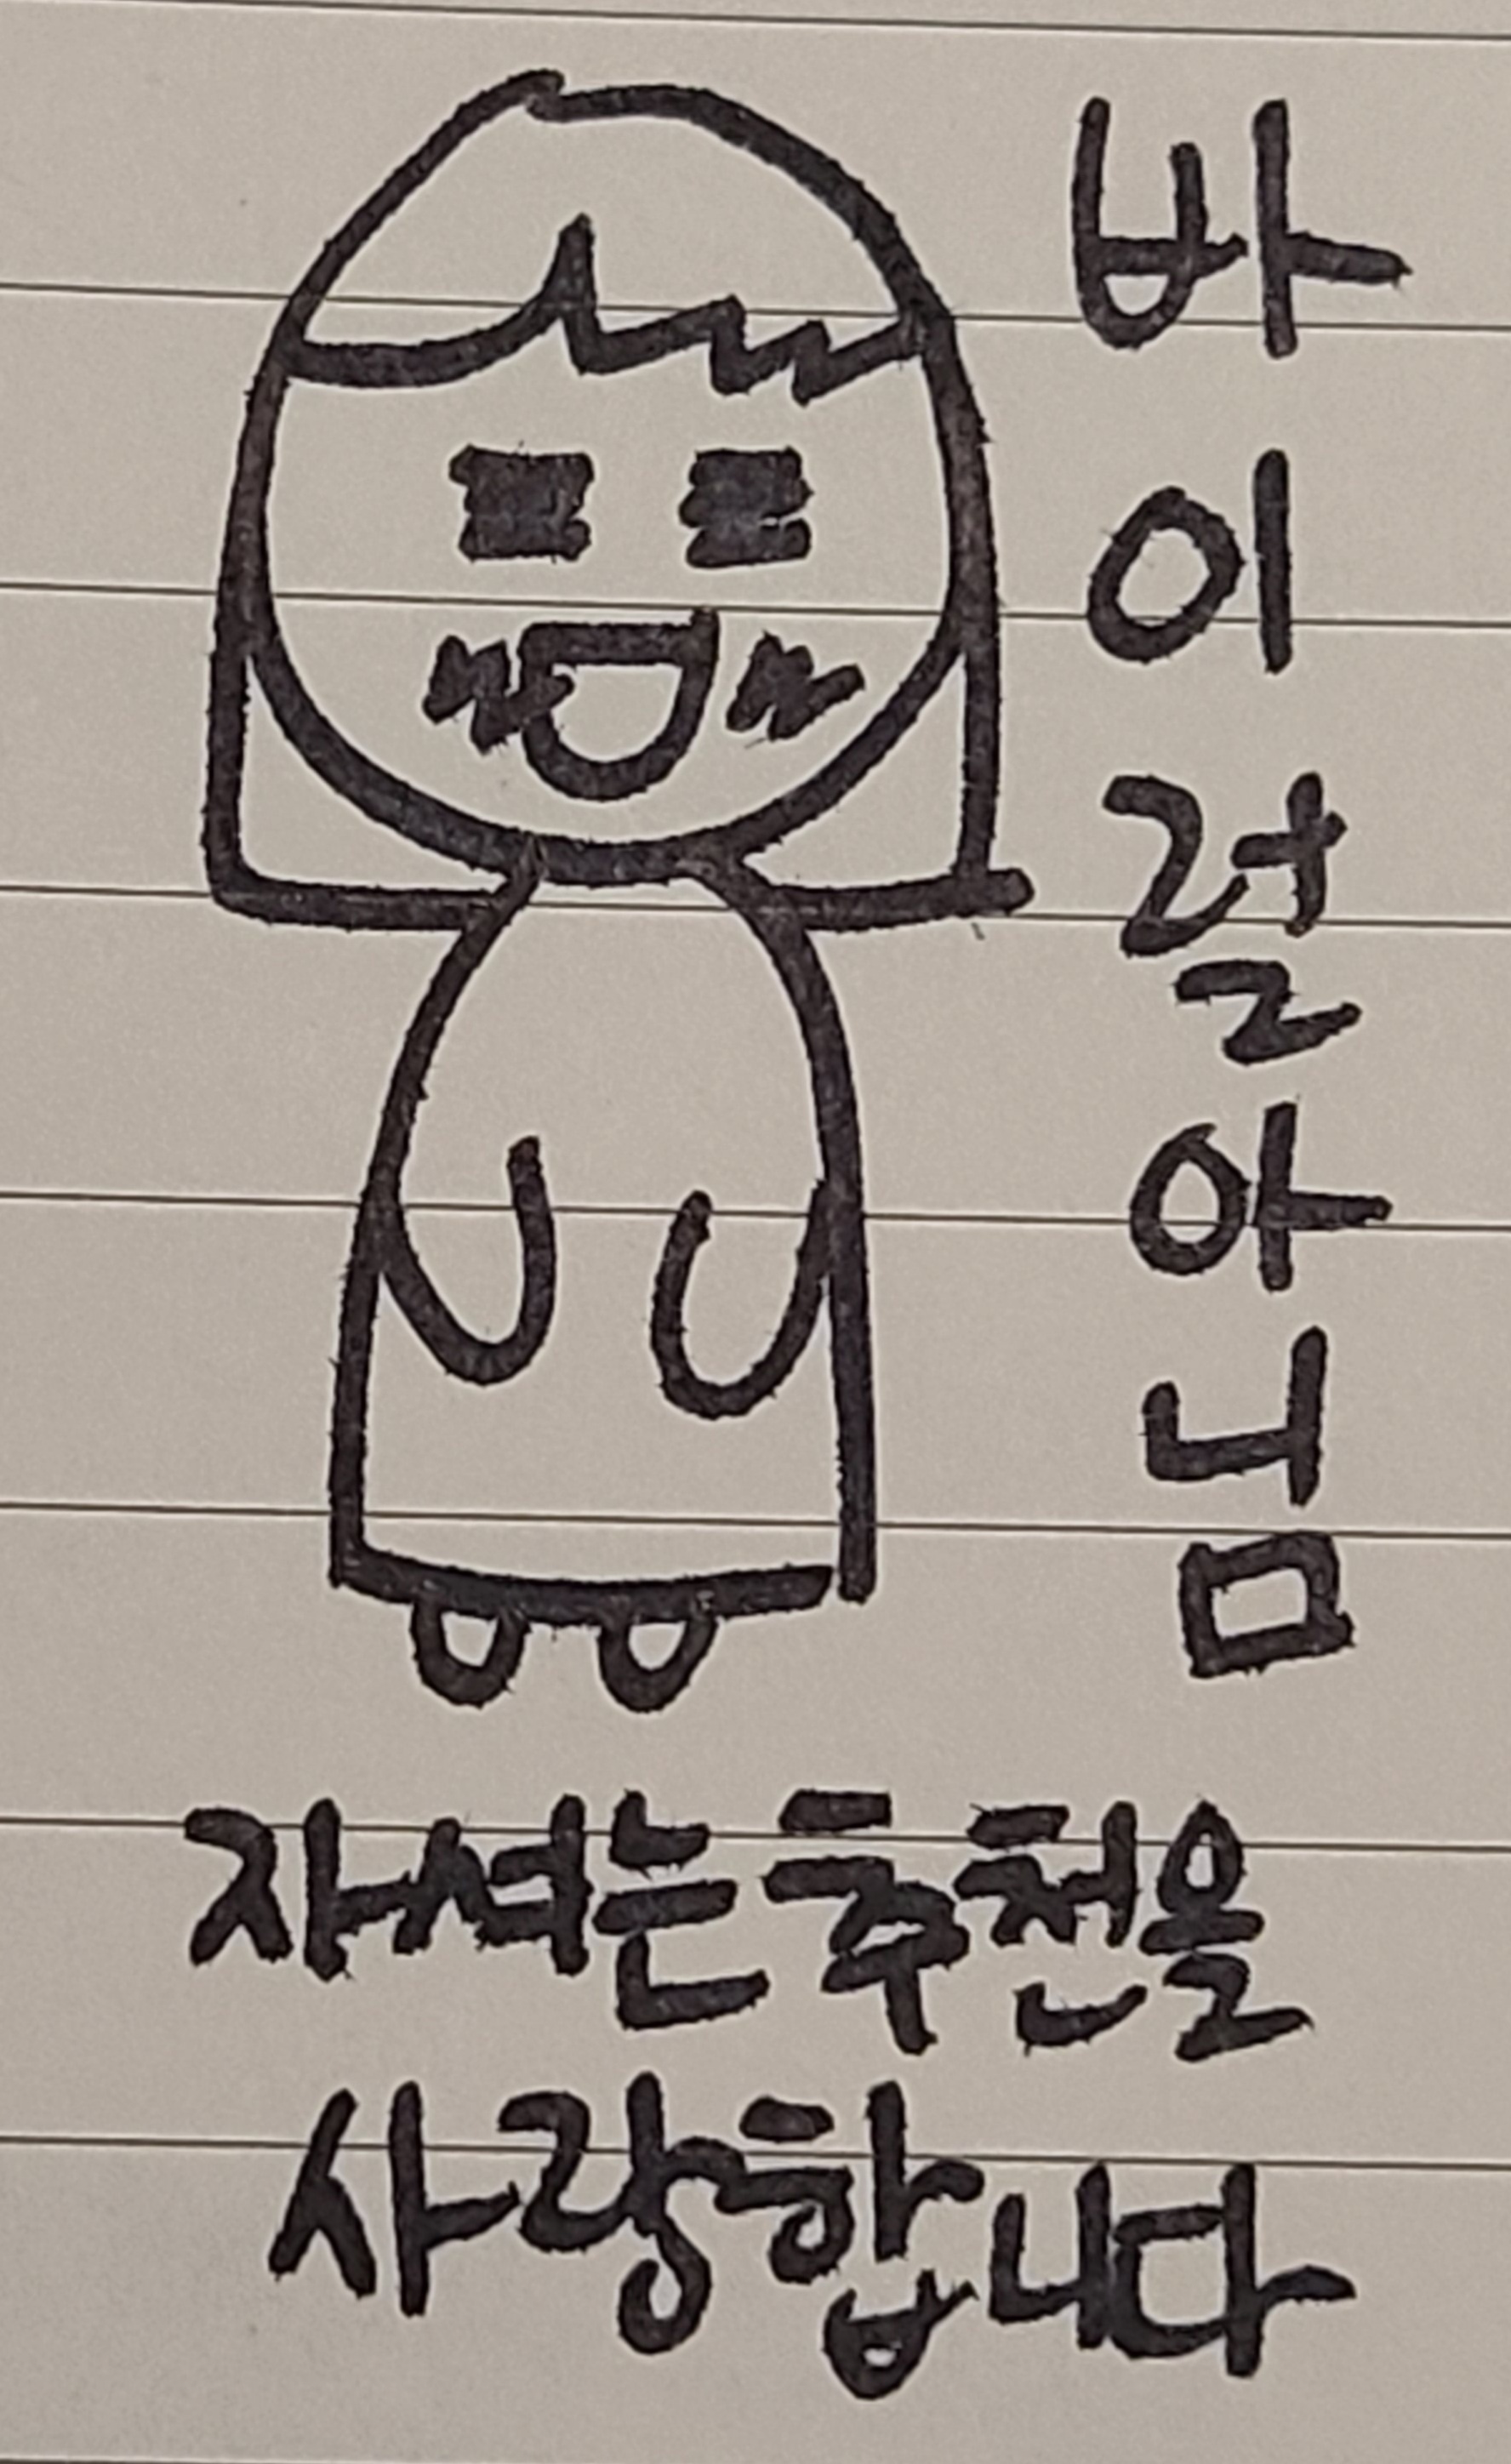 바이럴아님
자셔는추천을
사랑합니다